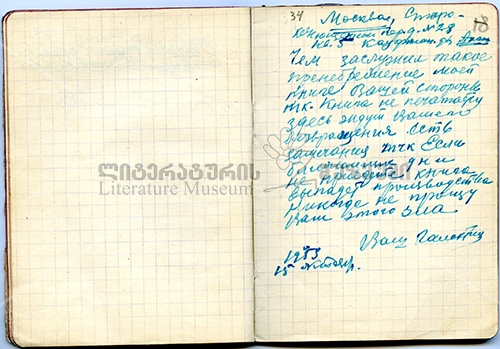 34
18
Москва, Старо-
конюшенный пер. д. N 28
кв. 5 Кауфман
Чем заслужил такое
пренебрежение моей
книге Вашей стороны
тчк. Книга не печатает
здесь ждут Вашего
возвращения Есть
замечания тчк Если
ближайшие дни
не приедете книга
выпадет производства
никогда не прощу
Вам этого зла
Ваш Галактион
1953
15
ლიტერატურის მუზეუმი
Literature Museum